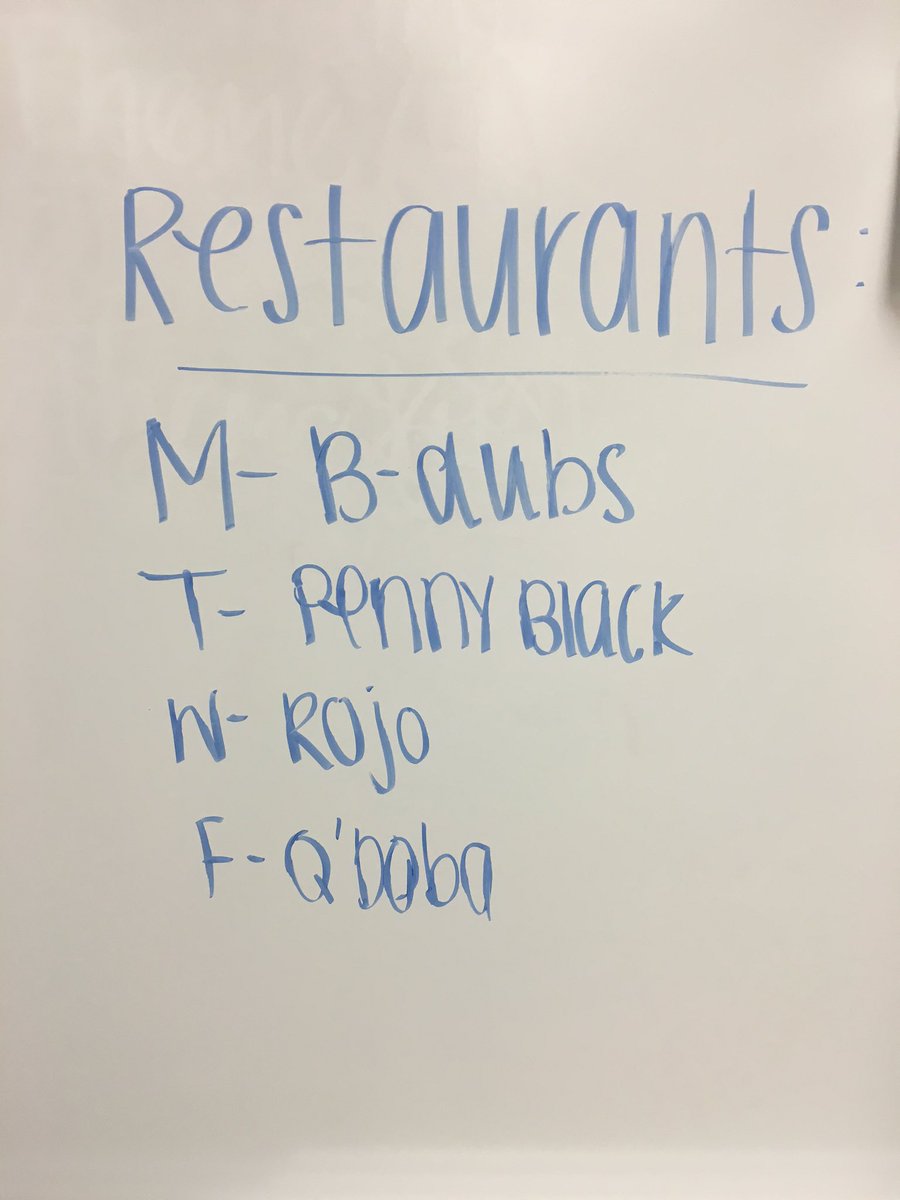 Restaurants:
M- B-dubs
T- Penny Black
W- Rojo
F- Q'doba